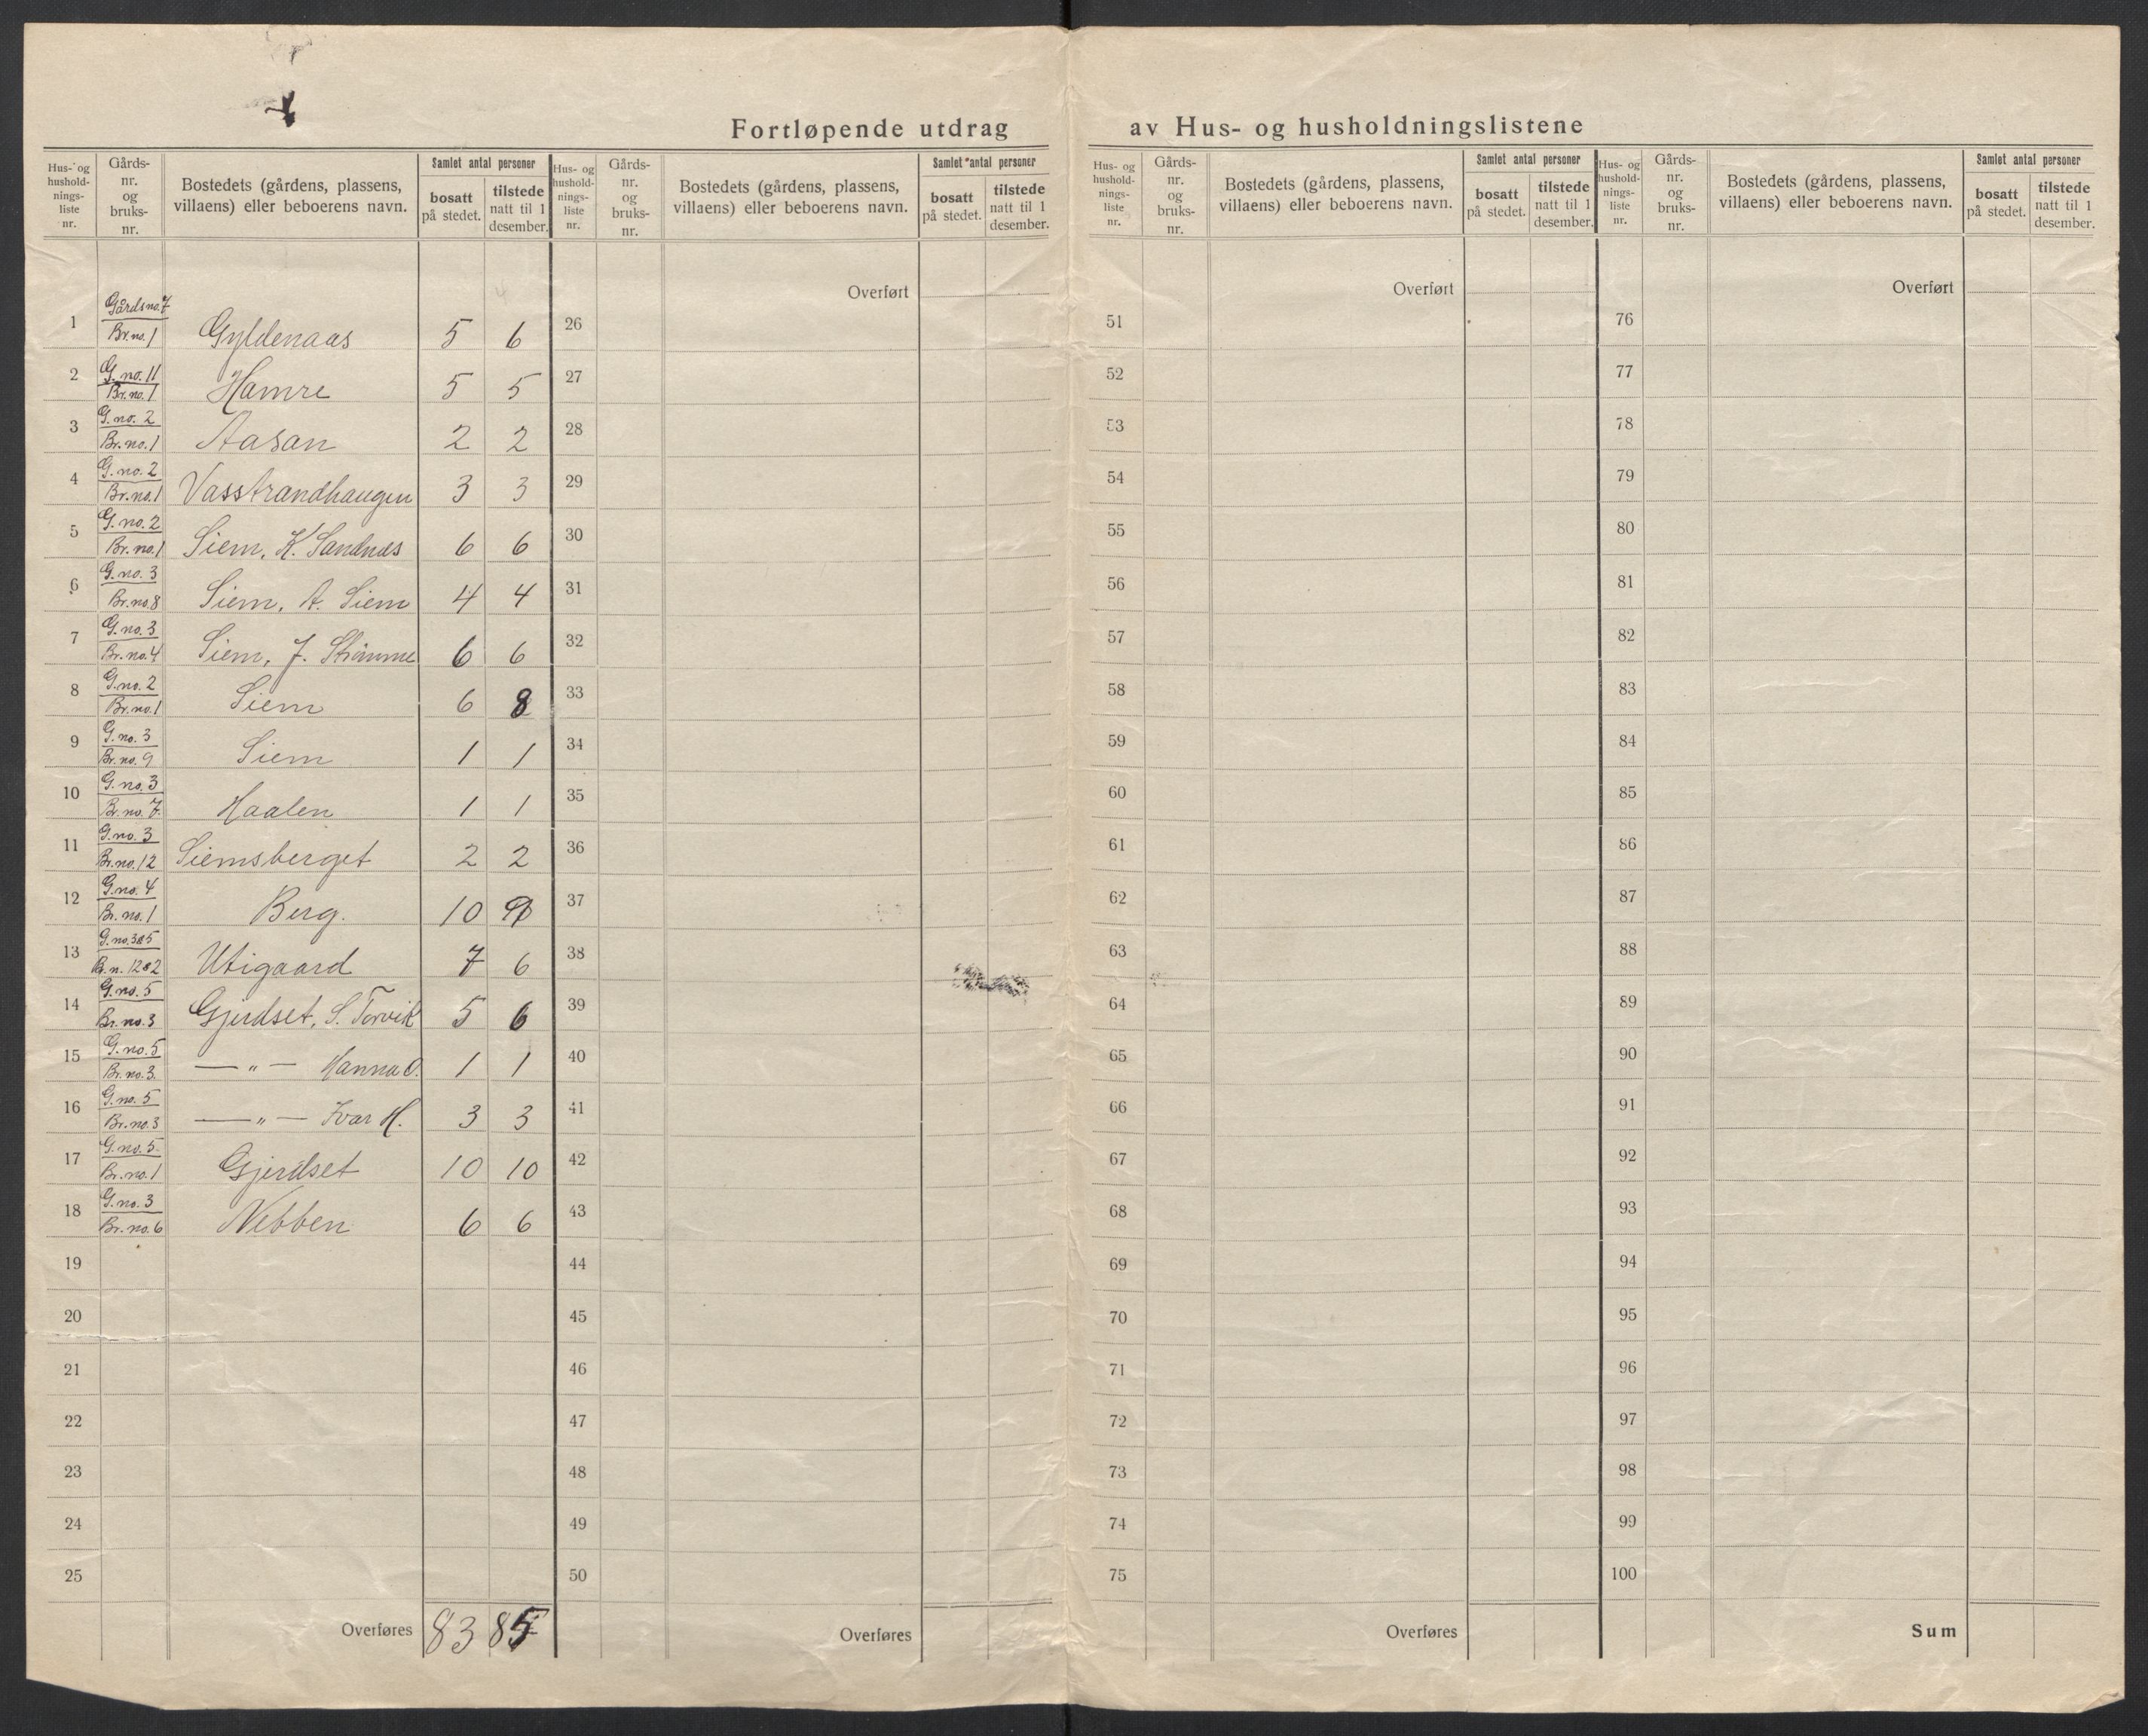 Fortløpende utdrag av Hus- og husholdningslistene
Hus- og hushold-nings-liste nr. | Gårds-nr. og bruks-nr. | Bostedets (gårdens, plassens, villaens) eller beboerens navn. | Samlet antal personer | bosatt på stedet. | tilstede natt til 1 desember.
Hus- og hushold-nings-liste nr. | Gårds-nr. og bruks-nr. | Bostedets (gårdens, plassens, villaens) eller beboerens navn. | Samlet antal personer | bosatt på stedet. | tilstede natt til 1 desember.
Hus- og hushold-nings-liste nr. | Gårds-nr. og bruks-nr. | Bostedets (gårdens, plassens, villaens) eller beboerens navn. | Samlet antal personer | bosatt på stedet. | tilstede natt til 1 desember.
Hus- og hushold-nings-liste nr. | Gårds-nr. og bruks-nr. | Bostedets (gårdens, plassens, villaens) eller beboerens navn. | Samlet antal personer | bosatt på stedet. | tilstede natt til 1 desember.
1 Gårdsno. 7 Br. no. 1 Gyldenaas 5 6
2 G. no. 11 Br. no. 1 Hamre 5 5
3 G. no. 2 Br. no. 1 Aasan 2 2
4 G. no. 2 Br. no. 1 Vasstrandhaugen 3 3
5 G. no. 2 Br. no. 1 Siem, K. Sandnes 6 6
6 G. no. 3 Br. no. 8 Siem, A. Siem 4 4
7 G. no. 3 Br. no. 4 Siem, J. 6 6
8 G. no. 2 Br. no. 1 Siem 6 8
9 G. no. 3 Br. no. 9 Siem 1 1
10 G. no. 3 Br. no. 7. Haalen 1 1
11 G. no. 3 Br. no. 12 Siemsberget 2 2
12 G. no. 4 Br. no. 1 Berg. 10 9
13 G. no. 3&5 B. n. 12&2 Utigaard 7 6
14 G. no. 5 Br. no. 3 Gjerdset, S. Torvik 5 6
15 G. no. 5 Br. no. 3. — " — Hanna O. 1 1
16 G. no. 5 Br. no. 3 — " — Ivar H. 3 3
17 G. no. 5. Br. no. 1 Gjerdset 10 10
18 G. no. 3 Br. no. 6 Nebben 6 6
19
20
21
22
23
24
25
Overføres 83 85
Overført
26
27
28
29
30
31
32
33
34
35
36
37
38
39
40
41
42
43
44
45
46
47
48
49
50
Overføres
Overført
51
52
53
54
55
56
57
58
59
60
61
62
63
64
65
66
67
68
69
70
71
72
73
74
75
Overføres
Overført
76
77
78
79
80
81
82
83
84
85
86
87
88
89
90
91
92
93
94
95
96
97
98
99
100
Sum